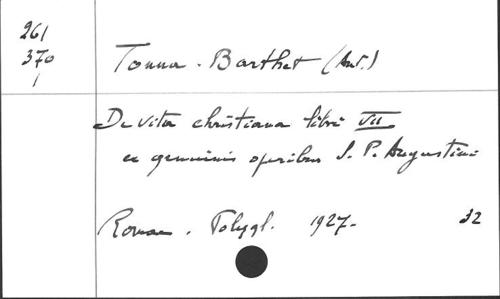 261
370
1
Tonna-Barthet (Ant.)
De vita christiana libri VII
ex genuinis operibus S. P. Augustini
Romae. Polygl. 1927-
32